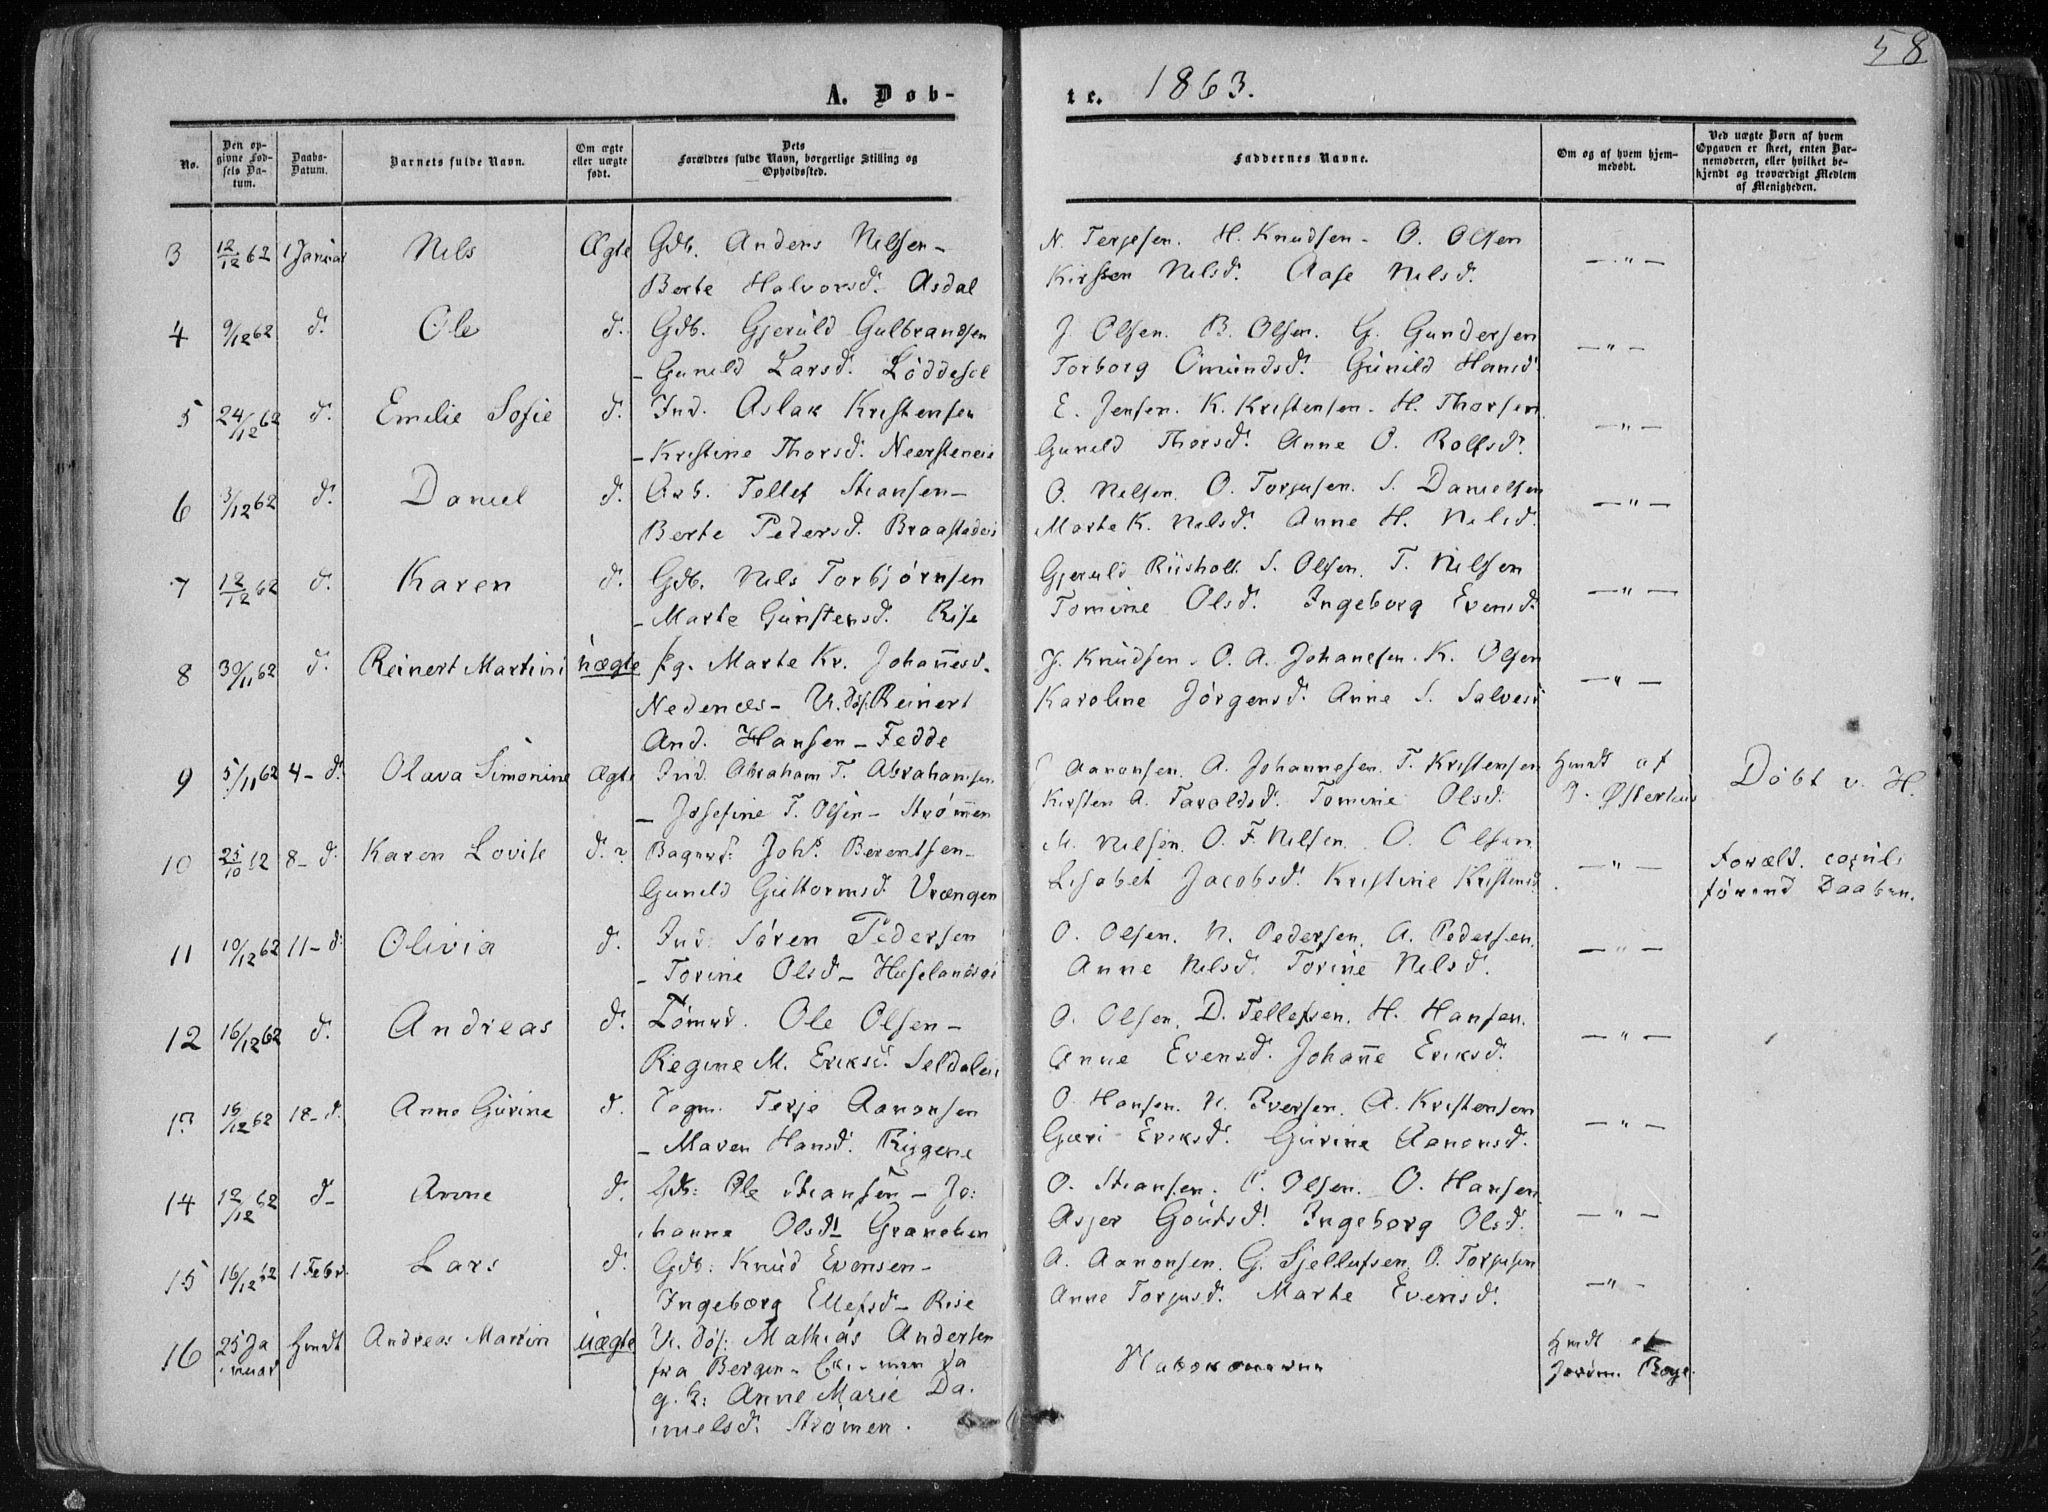 58
A. Døb-
te. 1863.
No.
Den op-
givne Fød-
sels Da-
tum.
Daabs-
Datum.
Barnets fulde Navn.
Om ægte
eller uægte
født.
Dets
Forældres fulde Navn, borgerlige Stilling og
Opholdssted.
Faddernes Navne.
Om og af hvem hjem-
medøbt.
Ved uægte Børn af hvem
Opgaven er skeet, enten Bar-
nemoderen, eller hvilket be-
kjendt og troværdigt Medlem
af Menigheden.
3 12/12 62 1 Januar Nils Ægte Gdb. Anders Nilsen - N. Terjesen. H. Knudsen - O. Olsen — " —
Berte Halvorsd. Asdal Kirsten Nilsd. Aase Nilsd.
4 9/12 62 d. Ole d. Gdb. Gjeruld Gulbrandsen J Olsen. B. Olsen. G. Gundersen — " —
- Gunild Larsd. Løddesøl Torborg Omundsd. Gunild Hansd.
5 24/12 62 d. Emilie Sofie d. Ind. Aslak Kristensen E. Jensen. K. Kristensen. H. Thorsen. — " —
- Kristine Thorsd. Neersteneie Gunild Thorsd. Anne O. Rolfsd.
6 3/12 62 d. Daniel d. Arb. Tellef Stiansen - O. Nilsen. O. Torjusen. S. Danielsen — " —
Berte Pedersd. Braastadeie Marte K. Nilsd. Anne H. Nilsd.
7 12/12 62 d. Karen d. Gdb. Nils Torbjørnsen Gjeruld Riisholt. S. Olsen. T. Nilsen — " —
- Marte Gunstensd. Rise Tomine Olsd. Ingeborg Evensd.
8 30/11 62 d. Reinert Martin uægte pg. Marte Kr. Johannesd. J. Knudsen. O. A. Johanesen. K. Olsen — " —
Nedenæs - U. Søf. Reinert Karoline Jørgensd. Anne S. Salvesd
And. Hansen - Fedde
9 5/11 62 4 - d. Olava Simonine Ægte Ind. Abraham T. Abrahamsen Aanonsen. A. Johannesen. T. Kristensen Hmdt af Døbt v. H.
- Josefine T. Olsen - Strømmen Kirsten A. Taraldsd. Tomine Olsd. J. Østerhus
10 25/10 62 8 - d. Karen Lovise d. Johs. Berentsen - M. Nilsen. O. F. Nilsen. O. Olsen — " — Foræld. copul.
Gunild Guttormsd. Vrængen Lisabet Jacobsd. Kristine Kristensd. førend Daaben.
11 10/12 62 11 - d. Olivia d. Ind. Søren Pedersen O. Olsen. N. Pedersen. A. Pedersen. — " —
- Torine Olsd - Huselandsei Anne Nilsd. Torine Nilsd.
12 16/12 62 d. Andreas d. Tømrd. Ole Olsen - O. Olsen. D. Tellefsen. H. Hansen. — " —
Regine M. Eriksd. Seldalen Anne Evensd. Johanne Eriksd.
13 15/12 62 18 - d. Anne Gurine d. Terje Aanonsen O. Hansen. N. Iversen. A. Kristensen — " —
- Maren Hansd. Riggene Guri Eriksd. Gurine Aanonsd.
14 12/12 62 d - Anne d. Gdb: Ole Stiansen - Jo: O. Stiansen. O. Olsen. O. Hansen — " —
hanne Olsd - Granehen Asjer Goutsd. Ingeborg Olsd.
15 16/12 62 1 Febr. Lars d. Gdb: Knud Evensen - A. Aanonsen. G. Sjellufsen. O. Torjusen — " —
Ingeborg Ellefsd - Rise Anne Torjusd. Marte Evensd.
16 25 Ja Hmdt Andreas Martin uægte U. Søf: Mathias Andersen Hmdt af
nuar fra Bergen - Jorom. Boye.
g. k: Anne Marie Da
nielsd. Strømen.